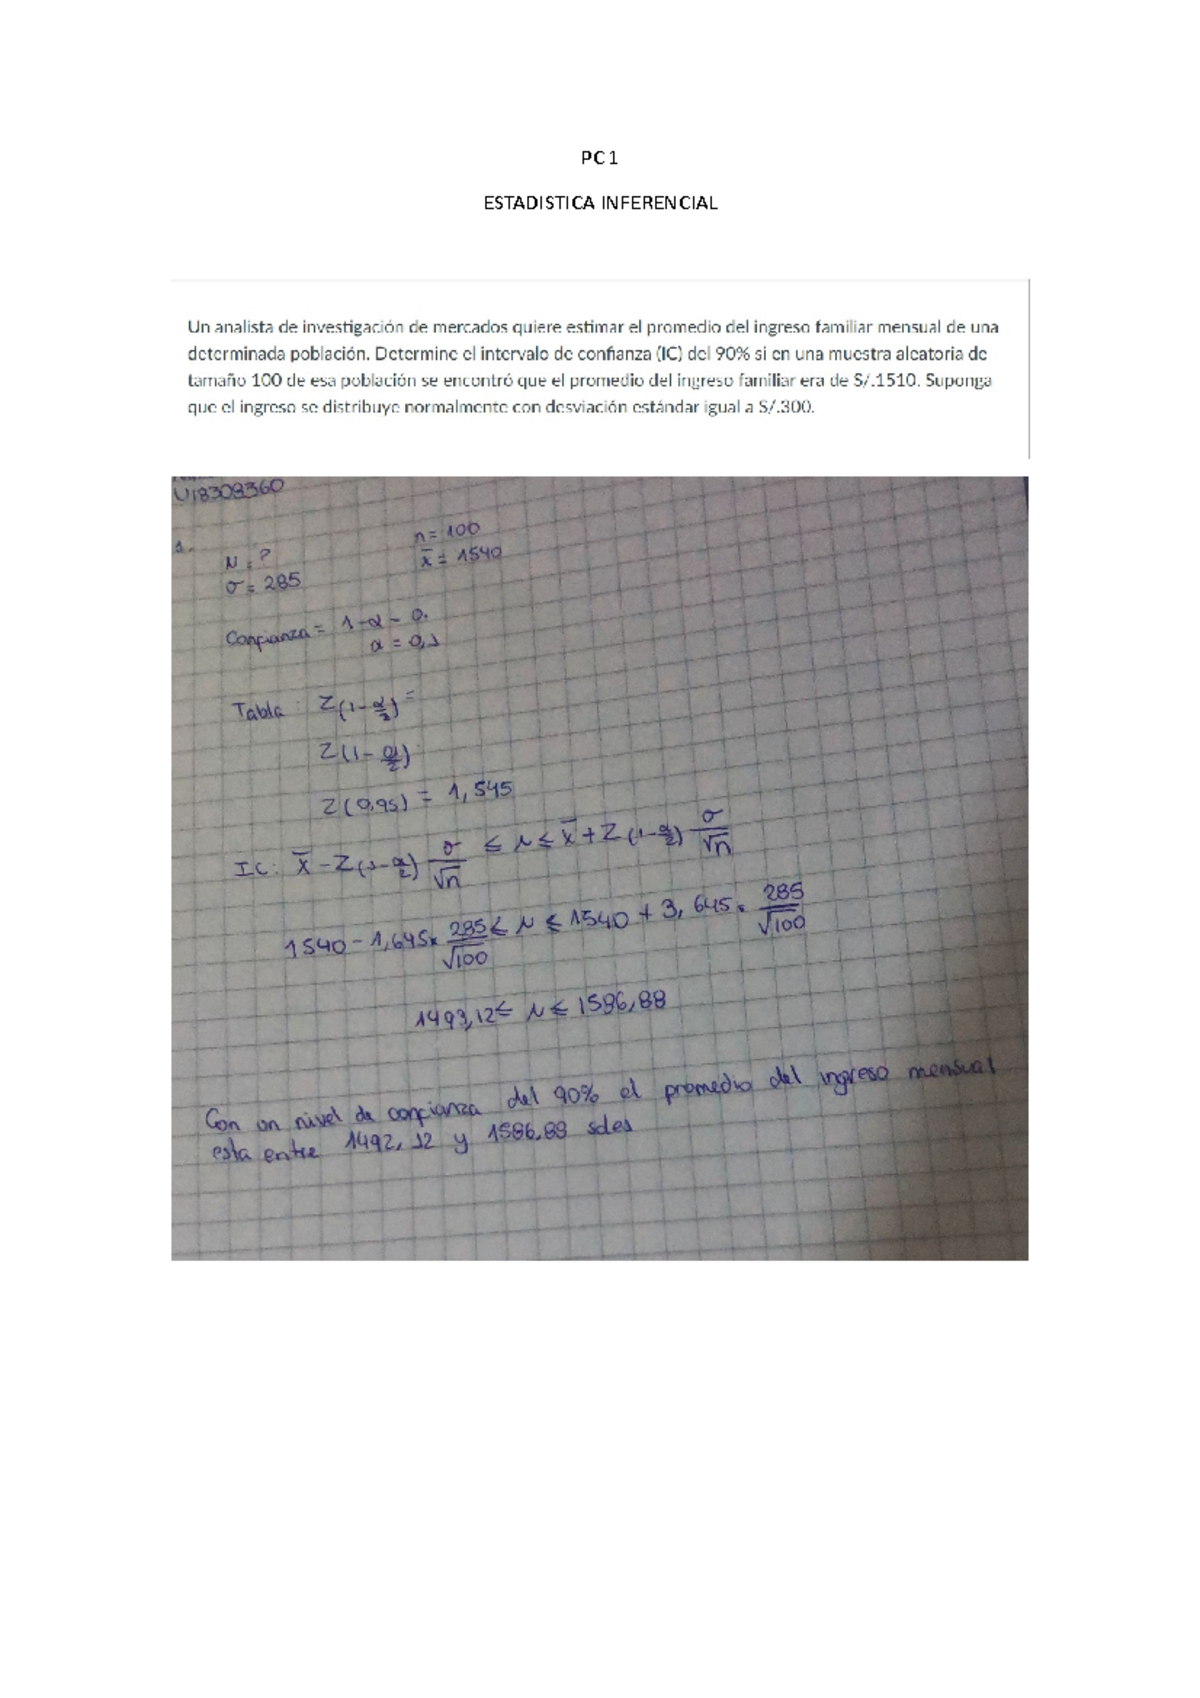 PC 1
ESTADISTICA INFERENCIAL
Un analista de investigación de mercados quiere estimar el promedio del ingreso familiar mensual de una
determinada población. Determine el intervalo de confianza (IC) del 90% si en una muestra aleatoria de
tamaño 100 de esa población se encontró que el promedio del ingreso familiar era de S/.1510. Suponga
que el ingreso se distribuye normalmente con desviación estándar igual a S/.300.
U18308360
1.
N = ? n = 100
σ = 285 x̄ = 1540
Confianza = 1-α = 0.
α = 0,1
Tabla : Z(1-α/2) =
Z(1-α/2)
Z(0,95) = 1,545
IC: x̄ - Z(1-α/2) σ/√n ≤ μ ≤ x̄ + Z(1-α/2) σ/√n
1540 - 1,645 × 285/√100 ≤ μ ≤ 1540 + 3,645 × 285/√100
1493,12 ≤ μ ≤ 1586,88
Con un nivel de confianza del 90% el promedio del ingreso mensual
esta entre 1492,12 y 1586,88 soles